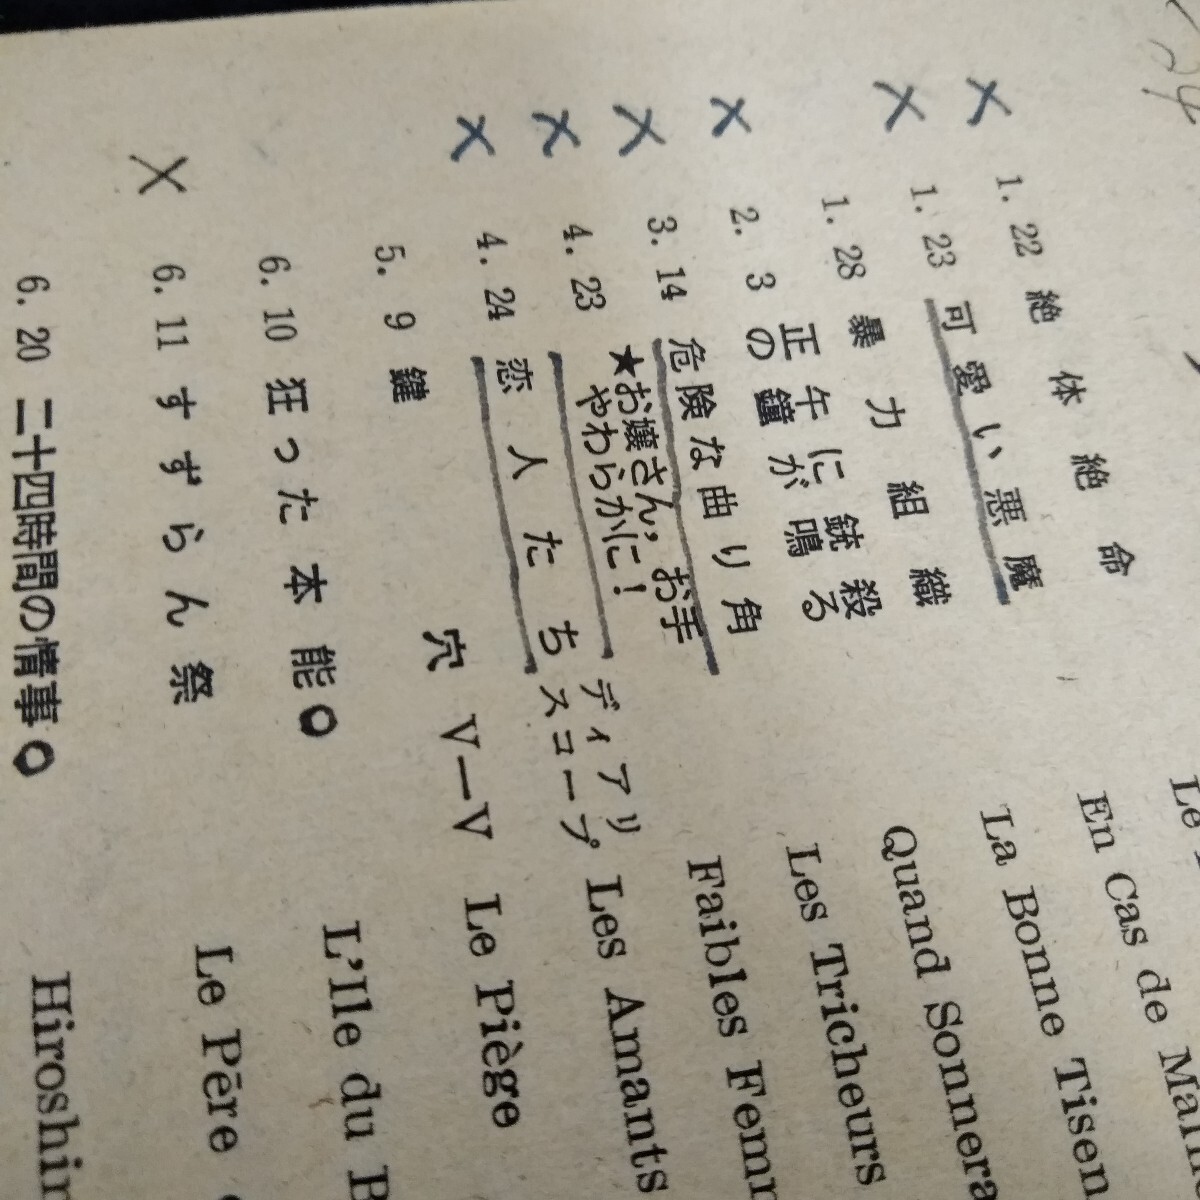 24
× 1. 22 絶体絶命 Le
× 1. 23 可愛い悪魔 En Cas de
1. 28 暴力組織 La Bonne
× 2. 3 正午に銃殺 Quand Sonnera
の鐘が鳴る
× 3. 14 危険な曲り角 Les Tricheurs
× 4. 23 ★お嬢さん,お手 Faibles
やわらかに!
× 4. 24 恋人たち ディアリ Les Amants
スコープ
5. 9 鍵穴 V—V Le Piège
6. 10 狂った本能 L'Ile du
× 6. 11 すずらん祭 Le Pēre
6. 20 二十四時間の情事